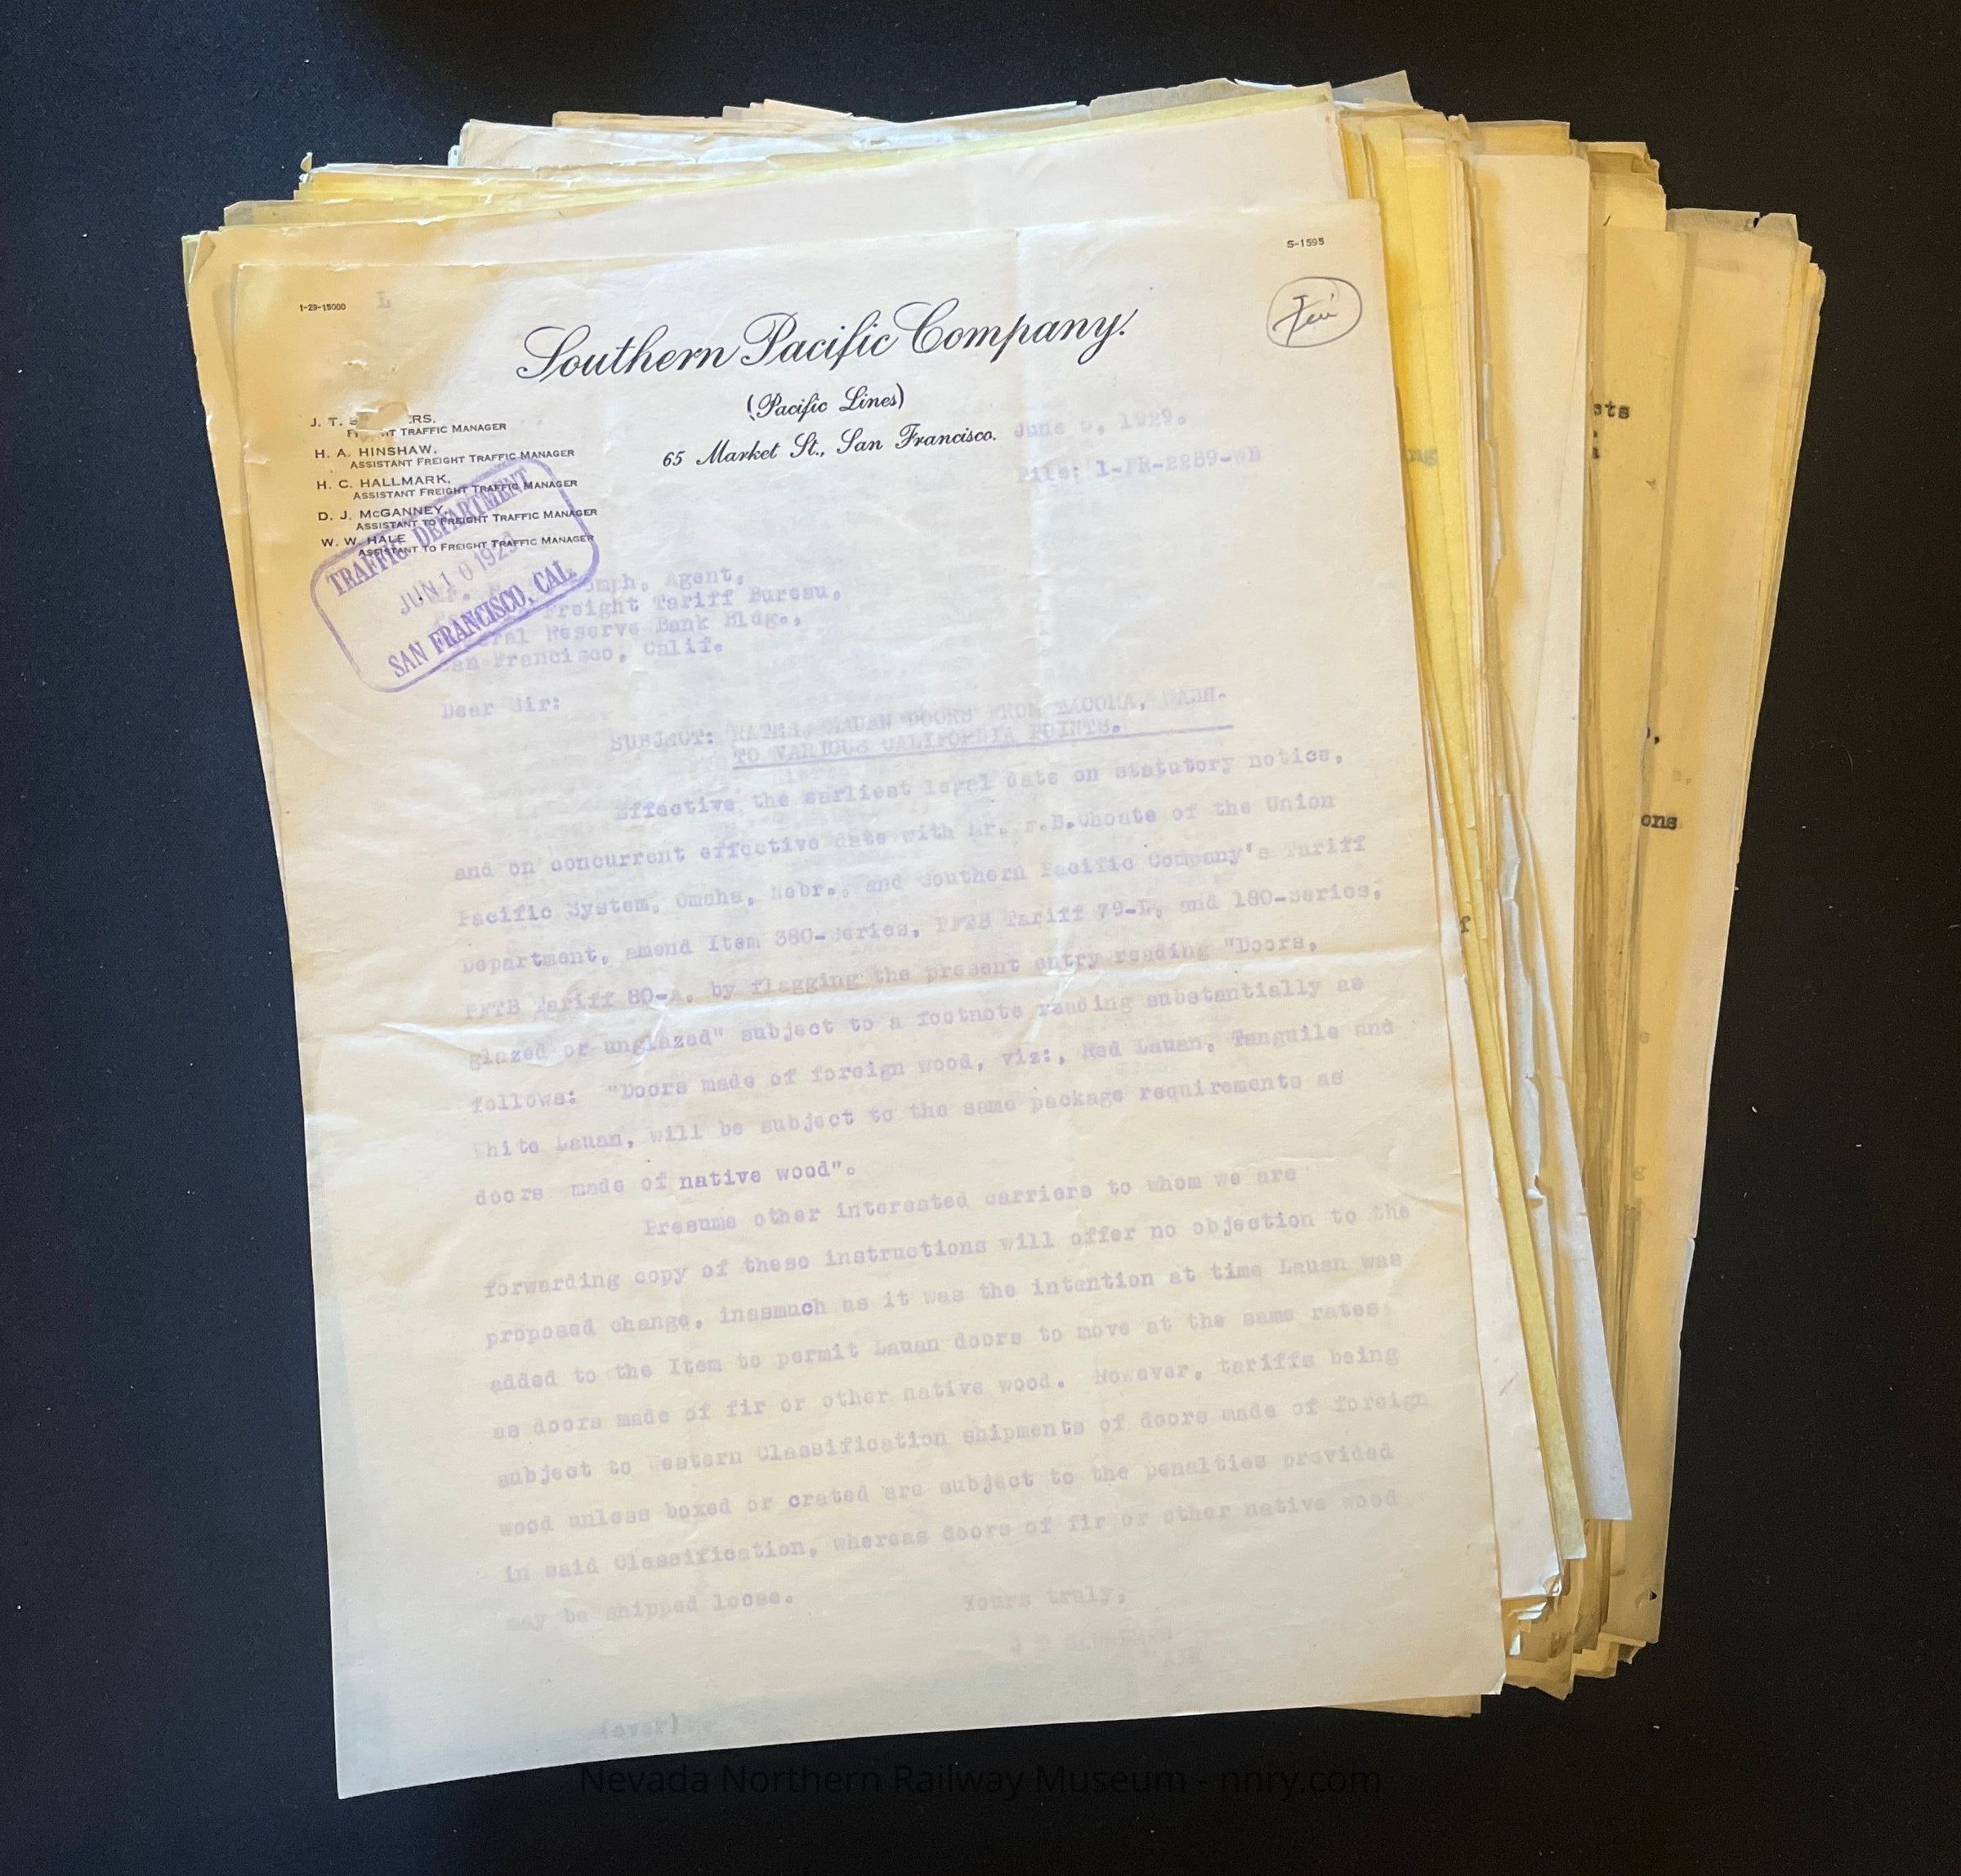 S-1595
1-29-15000 L
Southern Pacific Company.
(Pacific Lines)
65 Market St., San Francisco.
June 5, 1929.
File: 1-FR-2289-WB
J. T.
TRAFFIC MANAGER
H. A. HINSHAW,
ASSISTANT FREIGHT TRAFFIC MANAGER
H. C. HALLMARK,
ASSISTANT FREIGHT TRAFFIC MANAGER
D. J. McGANNEY,
ASSISTANT TO FREIGHT TRAFFIC MANAGER
W. W. HALE
ASSISTANT TO FREIGHT TRAFFIC MANAGER
TRAFFIC DEPARTMENT
JUN 10 1929
SAN FRANCISCO, CAL.
Agent,
Freight Tariff Bureau,
Reserve Bank Bldg.,
San Francisco, Calif.
Dear Sir:
SUBJECT: RATES, LAUAN DOORS FROM TACOMA, WASH.
TO VARIOUS CALIFORNIA POINTS.
Effective the earliest legal date on statutory notice,
and on concurrent effective date with Mr. F.B.Choate of the Union
Pacific System, Omaha, Nebr., and Southern Pacific Company's Tariff
Department, amend Item 380-Series, PFTB Tariff 79-L, and 180-Series,
PFTB Tariff 80-A, by flagging the present entry reading "Doors,
glazed or unglazed" subject to a footnote reading substantially as
follows: "Doors made of foreign wood, viz:, Red Lauan, Tanguile and
White Lauan, will be subject to the same package requirements as
doors made of native wood".
Presume other interested carriers to whom we are
forwarding copy of these instructions will offer no objection to the
proposed change, inasmuch as it was the intention at time Lauan was
added to the Item to permit Lauan doors to move at the same rates
as doors made of fir or other native wood. However, tariffs being
subject to Western Classification shipments of doors made of foreign
wood unless boxed or crated are subject to the penalties provided
in said Classification, whereas doors of fir or other native wood
may be shipped loose.
Yours truly,
(over)
sts
ng
ons
f
e
g
Nevada Northern Railway Museum - nnry.com